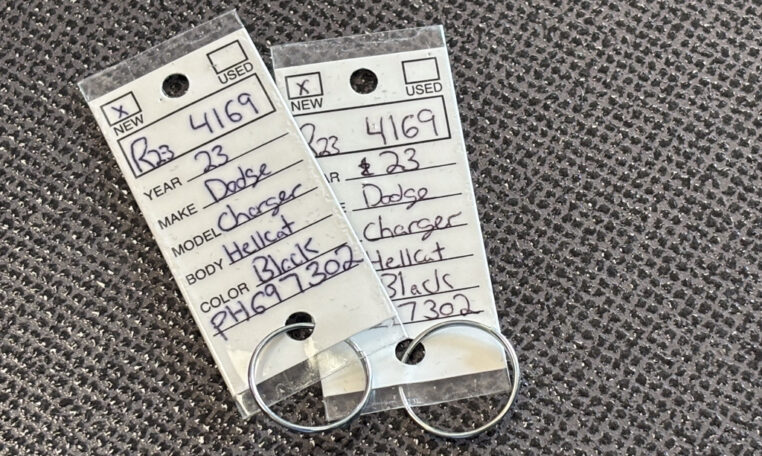 USED
X
NEW
R23 4169
YEAR 23
MAKE Dodge
MODEL Charger
BODY Hellcat
COLOR Black
PH697302
USED
X
NEW
R23 4169
R 23
E Dodge
Charger
Hellcat
Black
7302